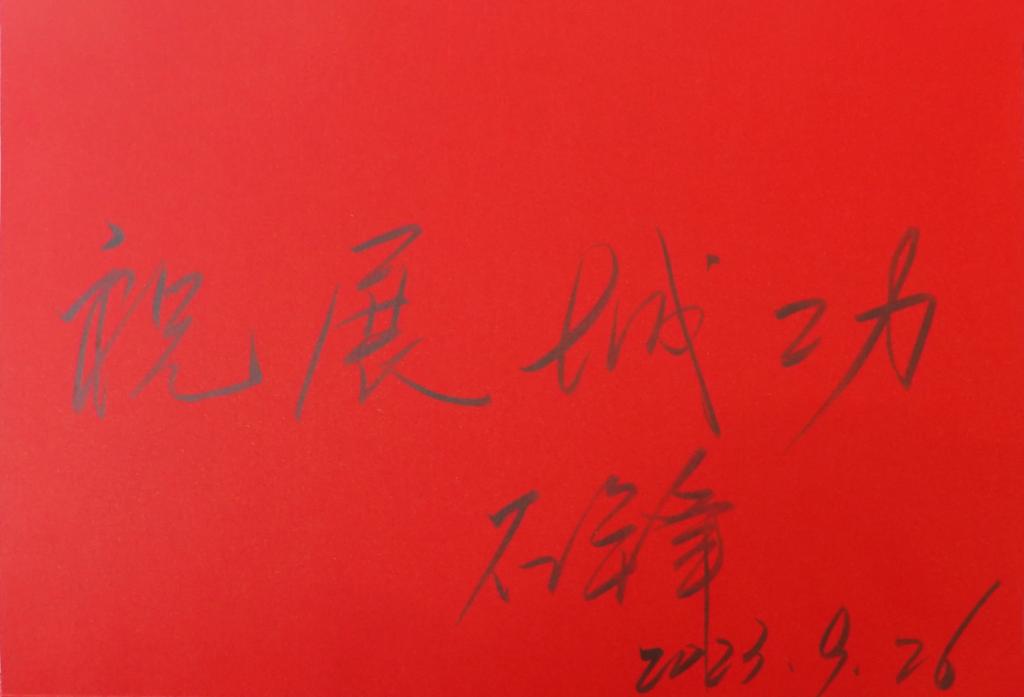 祝展城功
石锋
2023.9.26